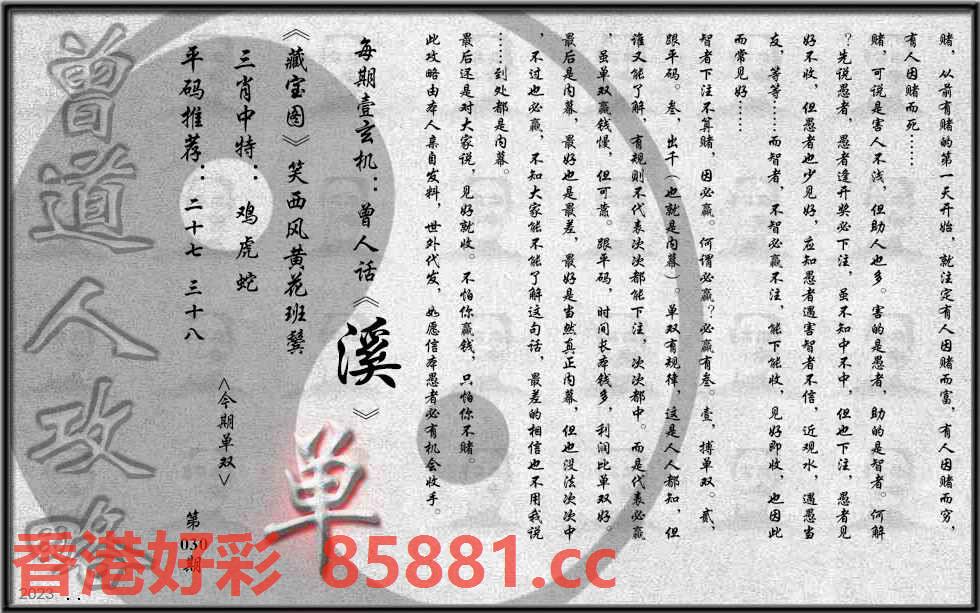 赌，从前有赌的第一天开始，就注定有人因赌而富，有人因赌而穷，
有人因赌而死……
赌，可说是害人不浅，但助人也多。害的是愚者，助的是智者。何解
？先说愚者，愚者逢开奖必下注，虽不知中不中，但也下注，愚者见
好不收，但愚者也少见好，应知愚者遇害智者不信，近观水，遇愚当
友，等等……而智者，不智必赢不注，能下能收，见好即收，也因此
而常见好……
智者下注不算赌，因必赢。何谓必赢？必赢有叁。壹，搏单双。贰，
跟平码。叁，出千（也就是内幕）。单双有规律，这是人人都知，但
谁又能了解，有规则不代表次次都能下注，次次都中。而是代表必赢
，虽单双赢钱慢，但可靠。跟平码，时间长本钱多，利润比单双好。
最后是内幕，最好也是最差，最好是当然真正内幕，但也没法次次中
，不过也必赢，不知大家能不能了解这句话，最差的相信也不用我说
……到处都是内幕。
最后还是对大家说，见好就收。不怕你赢钱，只怕你不赌。
此攻略由本人亲自发料，世外代发，如愿信本愚者必有机会收手。
每期壹玄机：曾人话《溪》
《藏宝图》笑西风黄花班鬓
三肖中特：鸡虎蛇
平码推荐：二十七 三十八
<今期单双>
单
第
030
期
曾道人攻略
香港好彩 85881.cc
2023